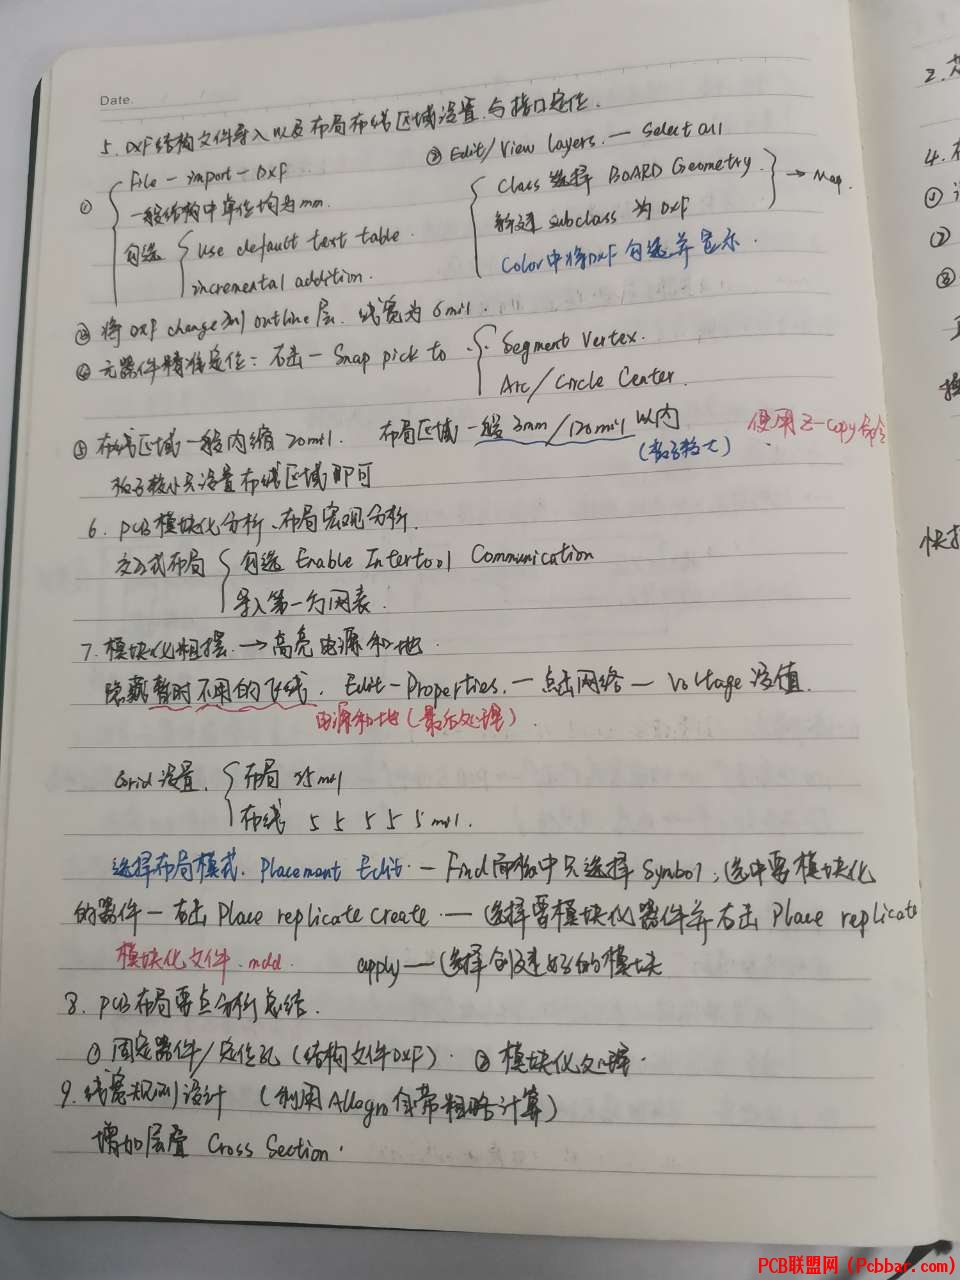 Date.
5. DXF结构文件导入以及布局布线区域设置.与接口定位.
① File — import — DXF
一般结构中单位均为mm.
勾选 use default text table.
incremental addition.
② Edit/View layers. — Select all
Class 选择 BOARD Geometry
新建 subclass 为DXF
→ Map.
Color中将DXF 勾选并显示.
③ 将DXF change到 outline层. 线宽为6mil.
④ 元器件精准定位: 右击 — Snap pick to
Segment Vertex.
Arc/Circle Center.
⑤ 布线区域一般内缩20mil. 布局区域一般3mm/120mil以内
(板子较大)
使用Z-Copy命令
板子较小只设置布线区域即可
6. PCB模块化分析、布局宏观分析.
交互式布局 勾选 Enable Intertool Communication
导入第一方网表.
7. 模块化粗摆. → 高亮电源和地.
隐藏暂时不用的飞线. Edit-Properties. — 点击网络 — Voltage 设值.
电源和地(最后处理).
Grid设置. 布局 25mil
布线 5 5 5 5 5mil.
选择布局模式. Placement Edit. — Find面板中只选择Symbol, 选中要模块化
的器件 — 右击 Place replicate create. — 选择要模块化器件并右击 Place replicate
模块化文件 .mdd. apply — 选择创建好的模块
8. PCB布局要点分析总结.
① 固定器件/定位孔(结构文件DXF). ② 模块化处理.
9. 线宽规则设计 (利用Allegro自带粗略计算)
增加层叠 Cross Section.
2.
4.
①
②
③
PCB联盟网(Pcbbar.com)